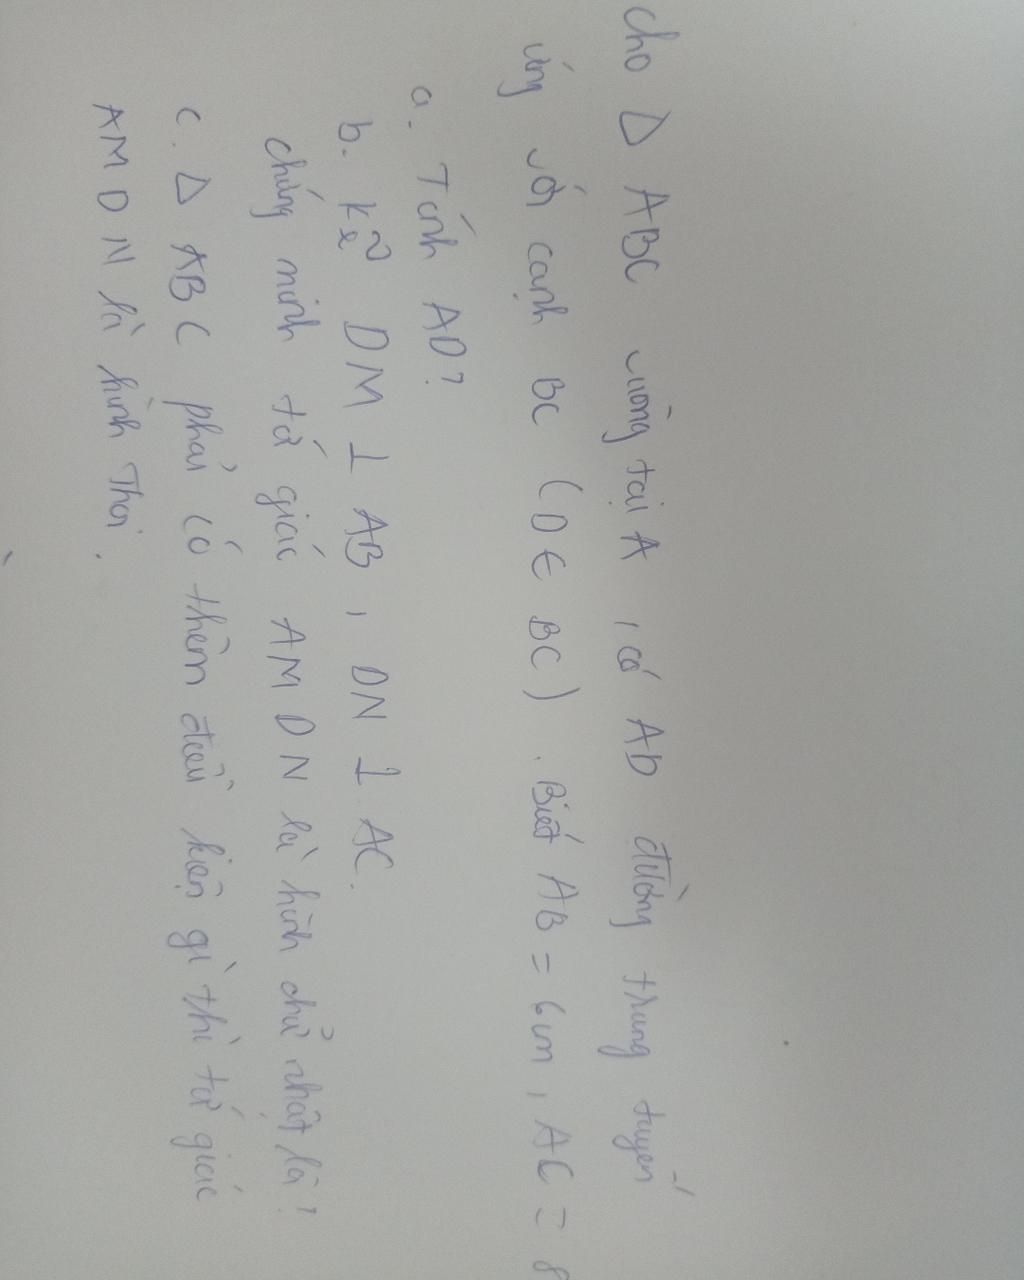 Cho Δ ABC vuông tại A, có AD đường trung tuyến
ứng với cạnh BC (D ∈ BC). Biết AB = 6cm, AC = 8
a. Tính AD?
b. Kẻ DM ⊥ AB, DN ⊥ AC.
chứng minh tứ giác AMDN là hình chữ nhật là?
c. Δ ABC phải có thêm điều kiện gì thì tứ giác
AMDN là hình Thoi.